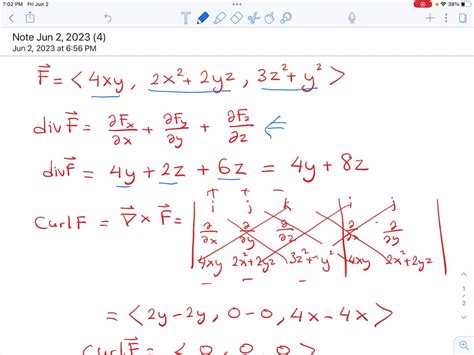 7:02 PM Fri Jun 2
38%
Note Jun 2, 2023 (4)
Jun 2, 2023 at 6:56 PM
F⃗ = < 4xy , 2x² + 2yz , 3z² + y² >
div F⃗ = ∂Fx/∂x + ∂Fy/∂y + ∂Fz/∂z ⇐
div F⃗ = 4y + 2z + 6z = 4y + 8z
+ + −
i j k i j
Curl F = ∇⃗ × F⃗ = | ∂/∂x ∂/∂y ∂/∂z | ∂/∂x ∂/∂y |
4xy 2x²+2yz 3z²+y² 4xy 2x²+2yz
− − −
= < 2y − 2y , 0 − 0 , 4x − 4x >
Curl F⃗ = < 0 , 0 , 0 >
1
2